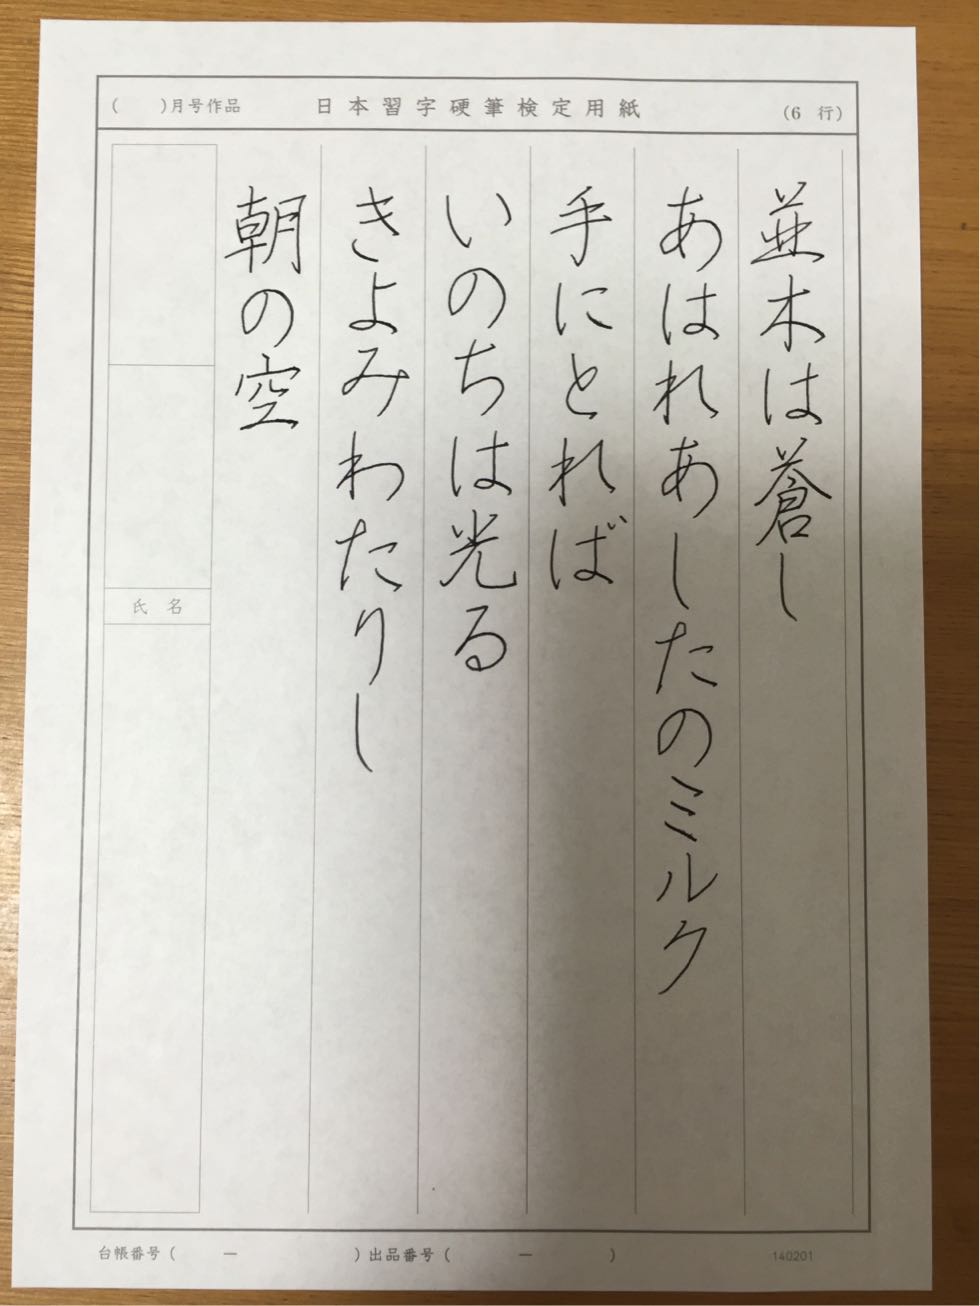 （　　）月号作品　　日本習字硬筆検定用紙　　（6 行）
並木は蒼し
あはれあしたのミルク
手にとれば
いのちは光る
きよみわたりし
朝の空
氏名
台帳番号（　　ー　　　　）出品番号（　　ー　　）　　140201